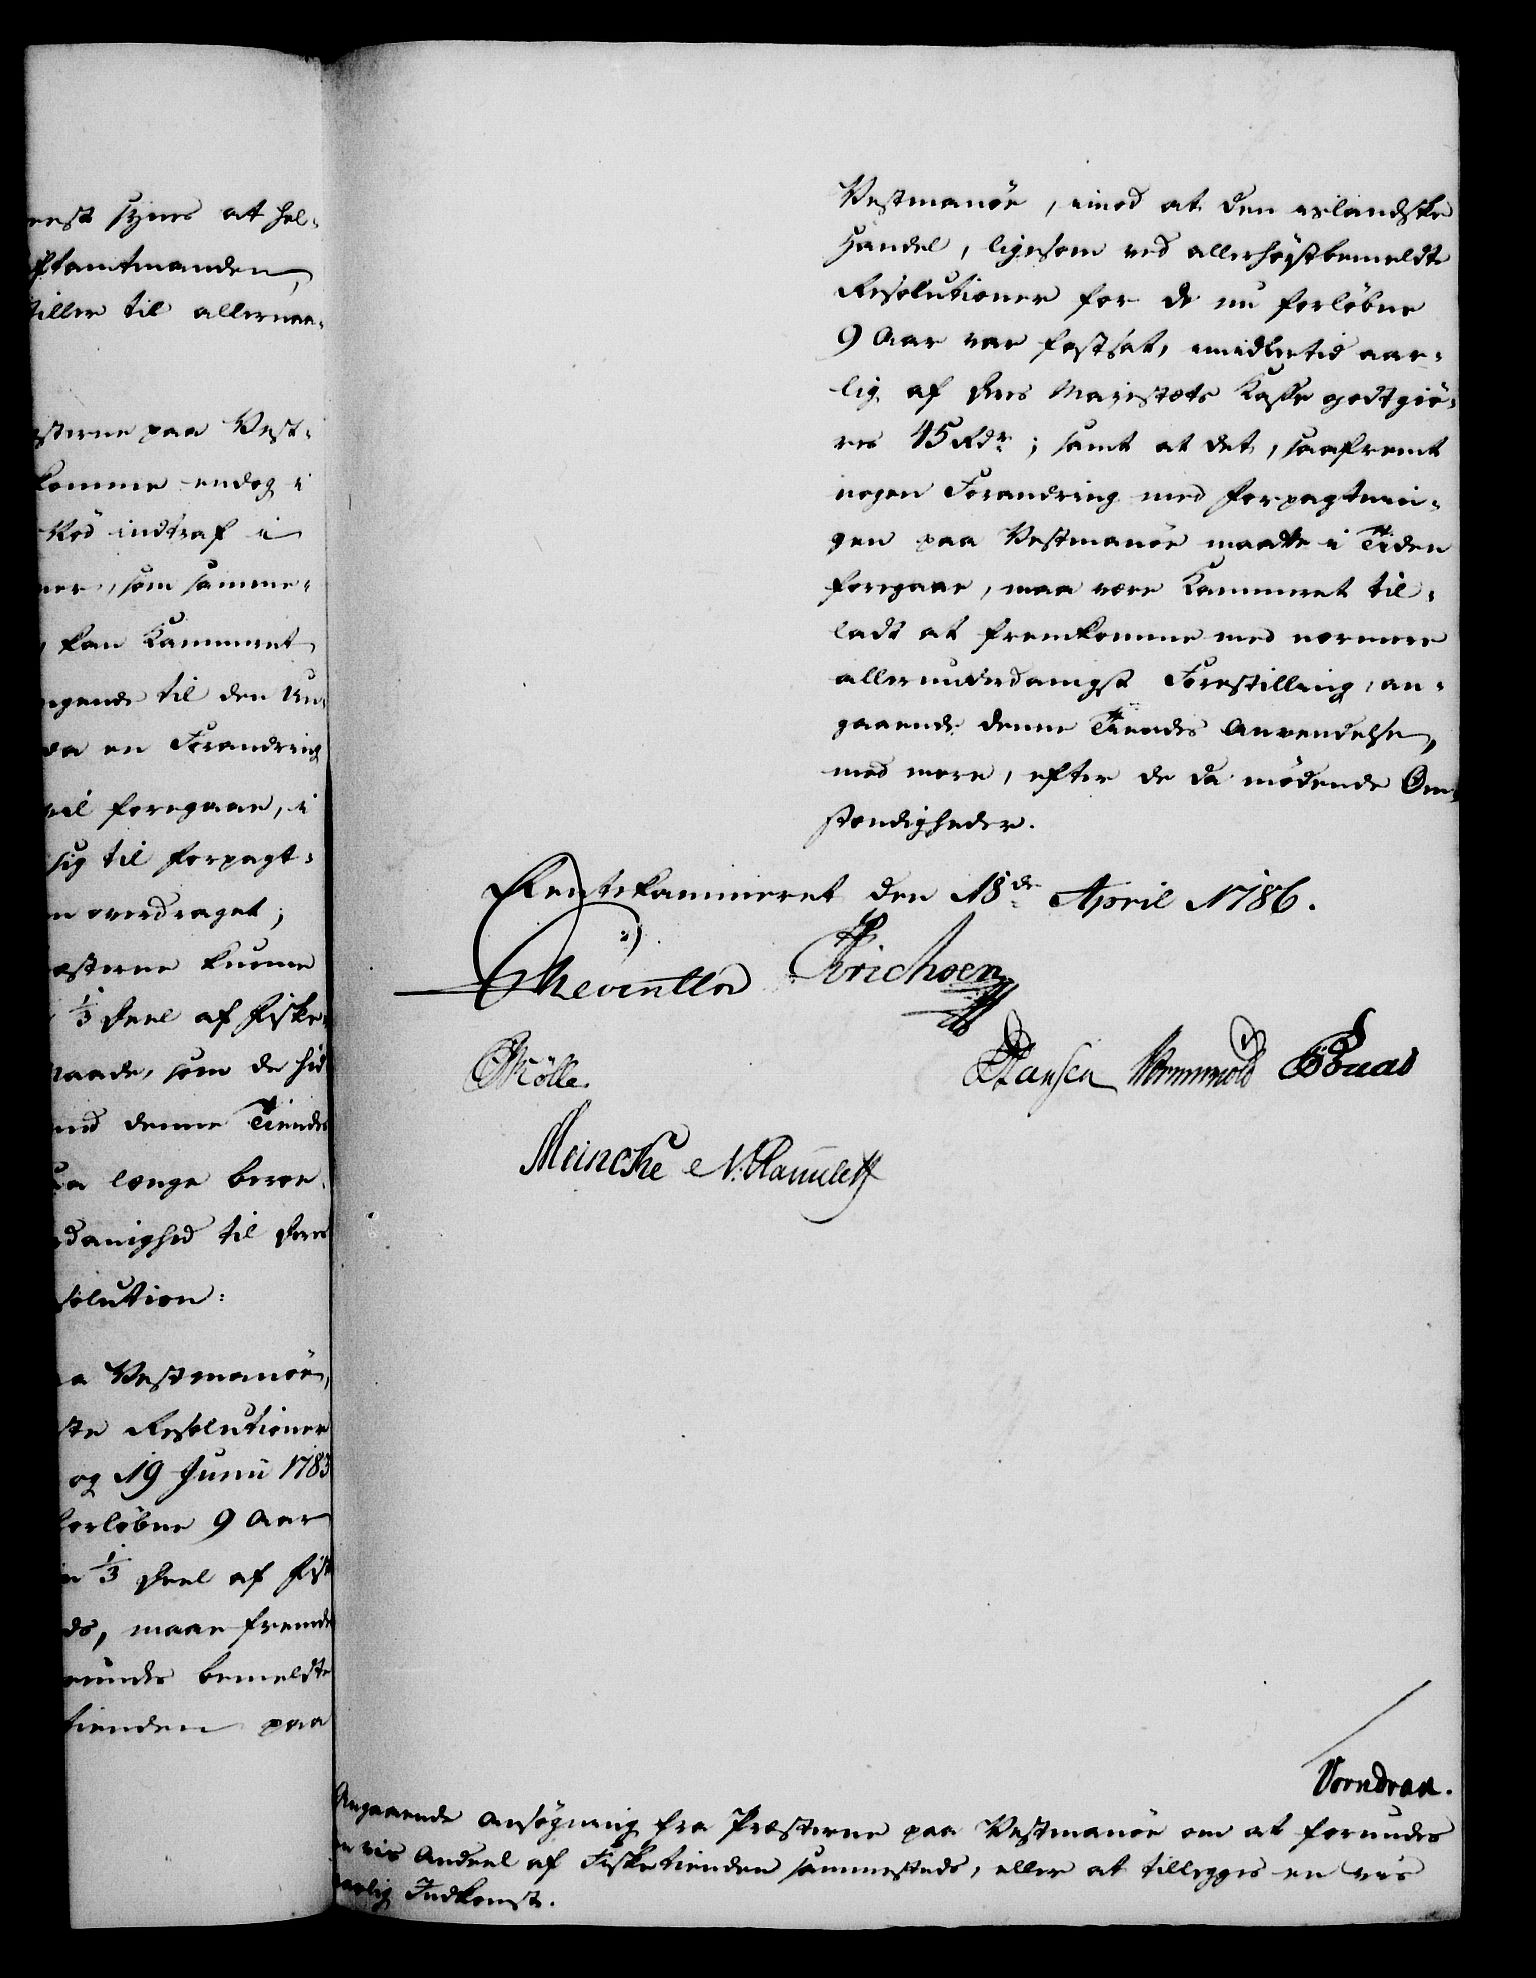 eest synes at hol-
ftamtmanden,
tiller til allernaa-
sterne paa Vest-
komme endog i
Kød indtraf i
ner, som samme-
kan Kammeret
gende til den Un-
da en Forandring
vil foregaae, i
sig til forpagt-
n overdraget;
æsterne kunne
1/3 Deel af Fiske-
maade, som de hid
med denne Tiendes
saa længe beroe
danighed til Deres
solution:
a Vestmanöe,
ste Resolutioner
og 19 Junii 1783
forløbne 9 Aar
n 1/3 Deel af Fisk
ds, maae fremde
undes bemeldte
tienden paa
Vestmanöe, imod at den islandske
Handel, ligesom ved allerhöystbemeldte
Resolutioner for de nu forløbne
9 Aar var fastsat, imidlertid aar-
lig af Deres Majestæts Kasse godtgiö-
res 45 Rdr; samt at det, saafremt
nogen Forandring med Forpagtnin-
gen paa Vestmanöe maatte i Tiden
foregaae, maa være Kammeret til-
ladt at fremkomme med nærmere
allerunderdanigst Forestilling, an-
gaaende denne Tiendes Anvendelse,
med mere, efter de da mödende Om-
stændigheder.
Rentekammeret den 18de April 1786.
Reventlow Erichsen
Mölle.
Hansen Wormskiold Buas
Meincke N. Ramdeff
Vorndran.
Angaaende Ansøgning fra Præsterne paa Vestmanöe om at forundes
en vis Andeel af Fisketienden sammesteds, eller at tillægges en vis
aarlig Indkomst.